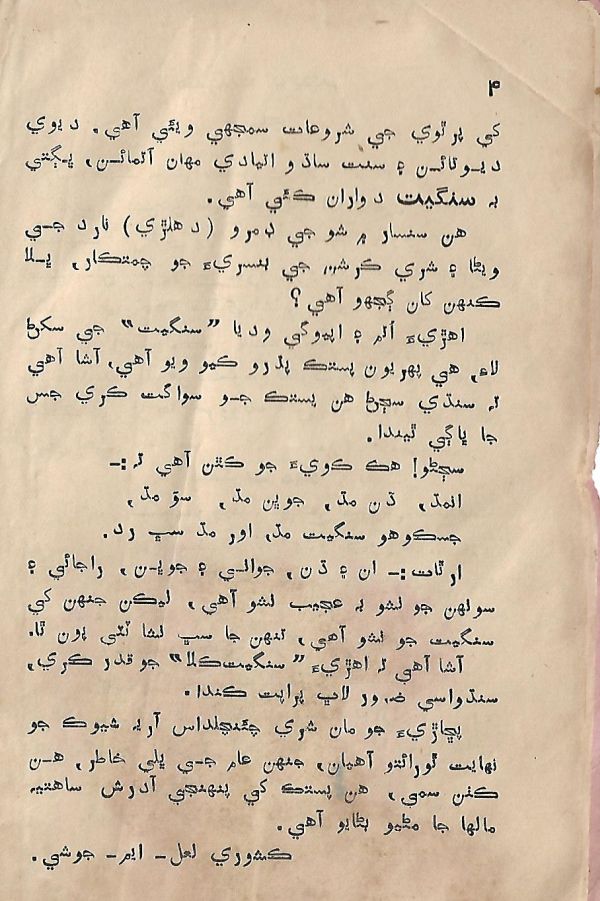 ۴
کي پرٿوي جي شروعات سمجهي ويئي آهي. ديوي
ديوتائن ۽ سنت ساڌو اتيادي مهان آتمائن، ڀڳتي
به سنگيت دواران ڪئي آهي.
هن سنسار ۾ شو جي ڊمرو (دهلڙي) نارد جي
ويڻا ۽ شري ڪرشن جي بنسريءَ جو چمتڪار، ڀلا
ڪنهن کان ڳجهو آهي؟
اهڙيءَ اُتم ۽ اپيوگي وديا ”سنگيت“ جي سکڻ
لاءِ، هي پهريون پستڪ پڌرو ڪيو ويو آهي، آشا آهي
ته سنڌي سڄڻ هن پستڪ جو سواگت ڪري جس
جا ڀاڳي ٿيندا.
سڄڻو! هڪ ڪويءَ جو ڪٿن آهي ته:-
انمد، ڌن مد، جوڀن مد، سؤ مد،
جسڪو هو سنگيت مد، اور مد سڀ رد.
ارٿات:- ان ۽ ڌن، جواني ۽ جوڀن، راجائي ۽
سونهن جو نشو به عجيب نشو آهي، ليڪن جنهن کي
سنگيت جو نشو آهي، تنهن جا سڀ نشا ٽٽي پون ٿا.
آشا آهي ته اهڙيءَ ”سنگيت ڪلا“ جو قدر ڪري،
سنڌواسي ضرور لاڀ پراپت ڪندا.
پڇاڙيءَ جو مان شري چئنچلداس آريه شيوڪ جو
نهايت ٿورائتو آهيان، جنهن عام جي ڀلي خاطر، هن
ڪٺن سمي، هن پستڪ کي پنهنجي آدرش ساهتيه
مالها جا مڻيو بڻايو آهي.
ڪشوري لعل - ايم - جوشي.